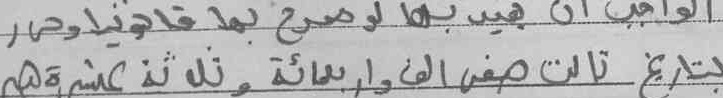 الواجب ان يعيد بها لو صرح بها قانونيا وحرر
بتاريخ ثالث صفر الف واربعمائة وثلاثة عشرة هـ